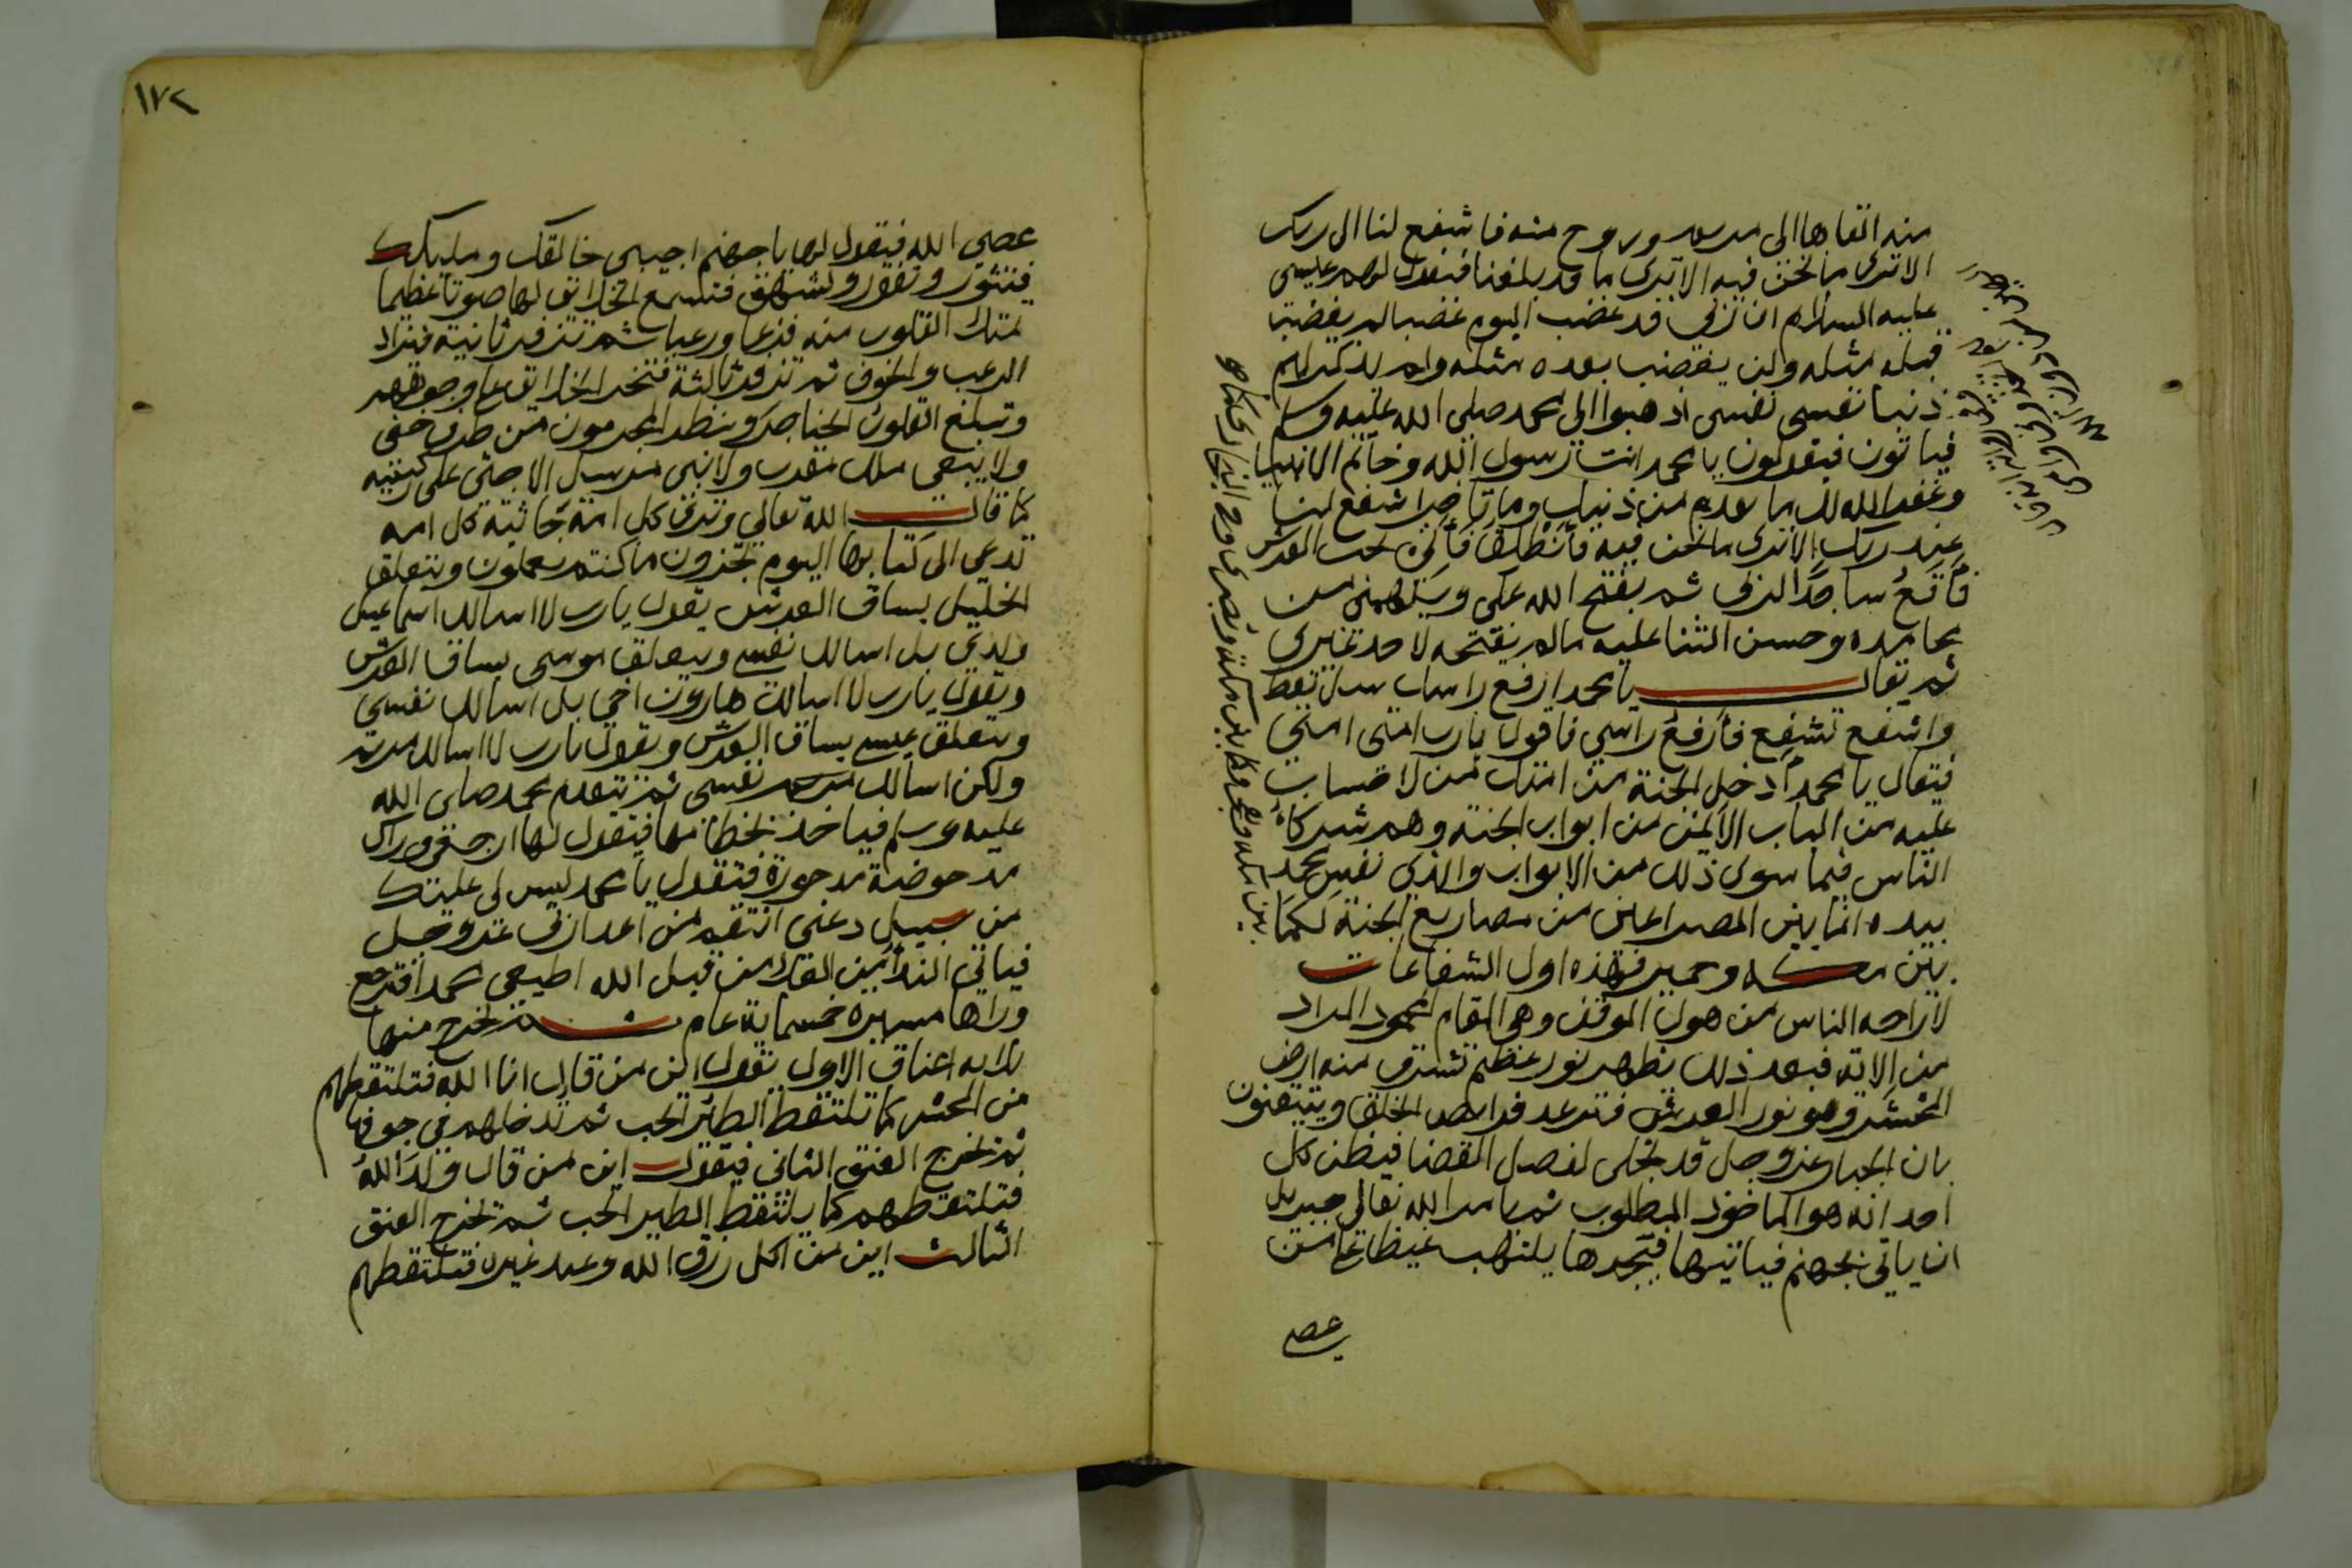 منه القاها الى مريم وروح منه فاشفع لنا الى ربك
الا ترى ما نحن فيه الا ترى ما قد بلغنا فيقول لهم عيسى
عليه السلام ان ربي قد غضب اليوم غضبا لم يغضب
قبله مثله ولن يغضب بعده مثله ولم يذكر لهم
ذنبا نفسي نفسي اذهبوا الى محمد صلى الله عليه وسلم
فياتون فيقولون يا محمد انت رسول الله وخاتم الانبيا
وغفر الله لك ما تقدم من ذنبك وما تاخر اشفع لنا
عند ربك الا ترى ما نحن فيه فأنطلق فآتي تحت العرش
فأقعُ ساجدًا لربي ثم يفتح الله علي ويلهمني من
محامده وحسن الثنا عليه ما لم يفتحه لاحد غيري
ثم يقال يا محمد ارفع راسك سل تعط
واشفع تشفع فأرفع راسي فاقول يا رب امتي امتي
فيقال يا محمد أدخل الجنة من امتك من لا حساب
عليه من الباب الأيمن من ابواب الجنة وهم شركاءُ
الناس فيما سوى ذلك من الابواب والذي نفس محمد
بيده ان ما بين المصراعين من مصاريع الجنة لكما
بين مكة وحمير فهذه اول الشفاعات
لاراحه الناس من هول الموقف وهي المقام المحمود المراد
من الاية فبعد ذلك يظهر نور عظيم تشرق منه ارض
المحشر وهو نور العرش فترعد فرايص الخلق ويتيقنون
بان الجبار عز وجل قد تجلى لفصل القضا فيظن كل
احد انه هو الماخوذ المطلوب ثم يامر الله تعالى جبريل
ان ياتي بجهنم فياتيها فيجدها يلتهب غيظا على من
عصي
١٧٢
عصي الله فيقول لها يا جهنم اجيبي خالقك ومليكك
فتثور وتفور وتشهق فتسمع الخلائق لها صوتا عظيما
تمتلئ القلوب منه فزعا ورعبا ثم تزفر ثانية فيزداد
الرعب والخوف ثم تزفر ثالثة فتخر الخلائق على وجوههم
وتبلغ القلوب الحناجر وينظر المجرمون من طرف خفي
ولا يبقى ملك مقرب ولا نبي مرسل الا جثى على ركبتيه
كما قال الله تعالى وترى كل امة جاثية كل امه
تدعى الى كتابها اليوم تجزون ما كنتم تعملون ويتعلق
الخليل بساق العرش يقول يارب لا اسالك اسماعيل
ولدي بل اسالك نفسي ويتعلق موسى بساق العرش
ويقول يارب لا اسالك هارون اخي بل اسالك نفسي
ويتعلق عيسى بساق العرش ويقول يارب لا اسالك مريم
ولكن اسالك نفسي ثم يتقدم محمد صلى الله
عليه وسلم فياخذ بخطامها فيقول لها ارجعي وراك
مدحوضة مدحورة فتقول يا محمد ليس لي عليك
من سبيل دعني انتقم من اعدا ربي عز وجل
فياتي الندأ من العلا من قبل الله اطيعي محمدا فترجع
وراها مسيرة خمسماية عام ثم تخرج منها
ثلاثه اعناق الاول يقول اين من قال انا الله فتلتقطهم
من المحشر كما تلتقط الطير الحب ثم تدخلهم في جوفها
ثم تخرج العنق الثاني فيقول اين من قال ولدَ اللهُ
فتلتقطهم كما يلتقط الطير الحب ثم تخرج العنق
الثالث اين من اكل رزق الله وعبد غيره فتلتقطهم